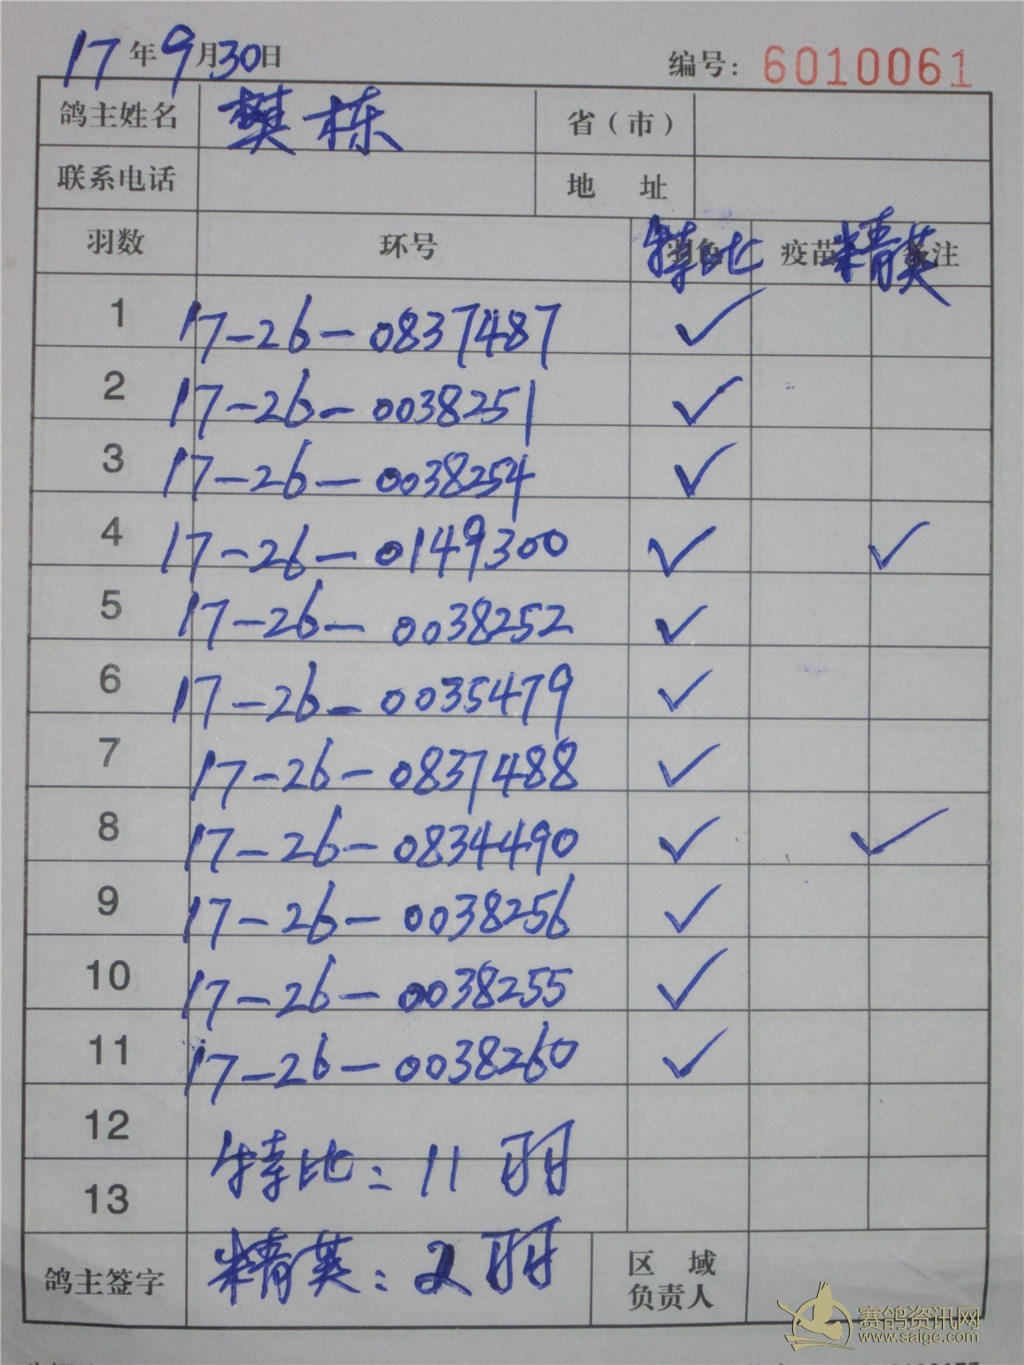 17年9月30日 编号：6010061
鸽主姓名 樊栋 省（市）
联系电话 地 址
羽数 环号 特比 疫苗 精英 备注
1 17-26-0837487 ✓
2 17-26-0038251 ✓
3 17-26-0038254 ✓
4 17-26-0149300 ✓ ✓
5 17-26-0038252 ✓
6 17-26-0035479 ✓
7 17-26-0837488 ✓
8 17-26-0834490 ✓ ✓
9 17-26-0038256 ✓
10 17-26-0038255 ✓
11 17-26-0038260 ✓
12
特比：11羽
13
鸽主签字 精英：2羽 区 域
负责人
赛鸽资讯网
www.saige.com